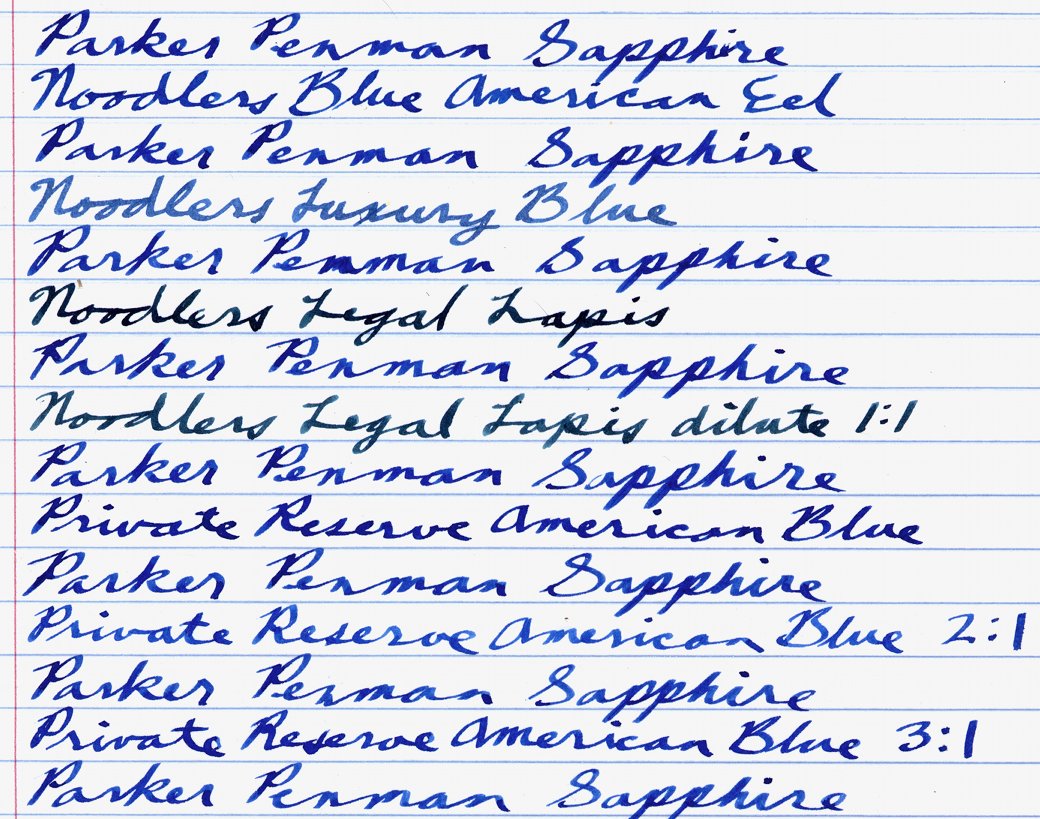 Parker Penman Sapphire
Noodlers Blue American Eel
Parker Penman Sapphire
Noodlers Luxury Blue
Parker Penman Sapphire
Noodlers Legal Lapis
Parker Penman Sapphire
Noodlers Legal Lapis dilute 1:1
Parker Penman Sapphire
Private Reserve American Blue
Parker Penman Sapphire
Private Reserve American Blue 2:1
Parker Penman Sapphire
Private Reserve American Blue 3:1
Parker Penman Sapphire